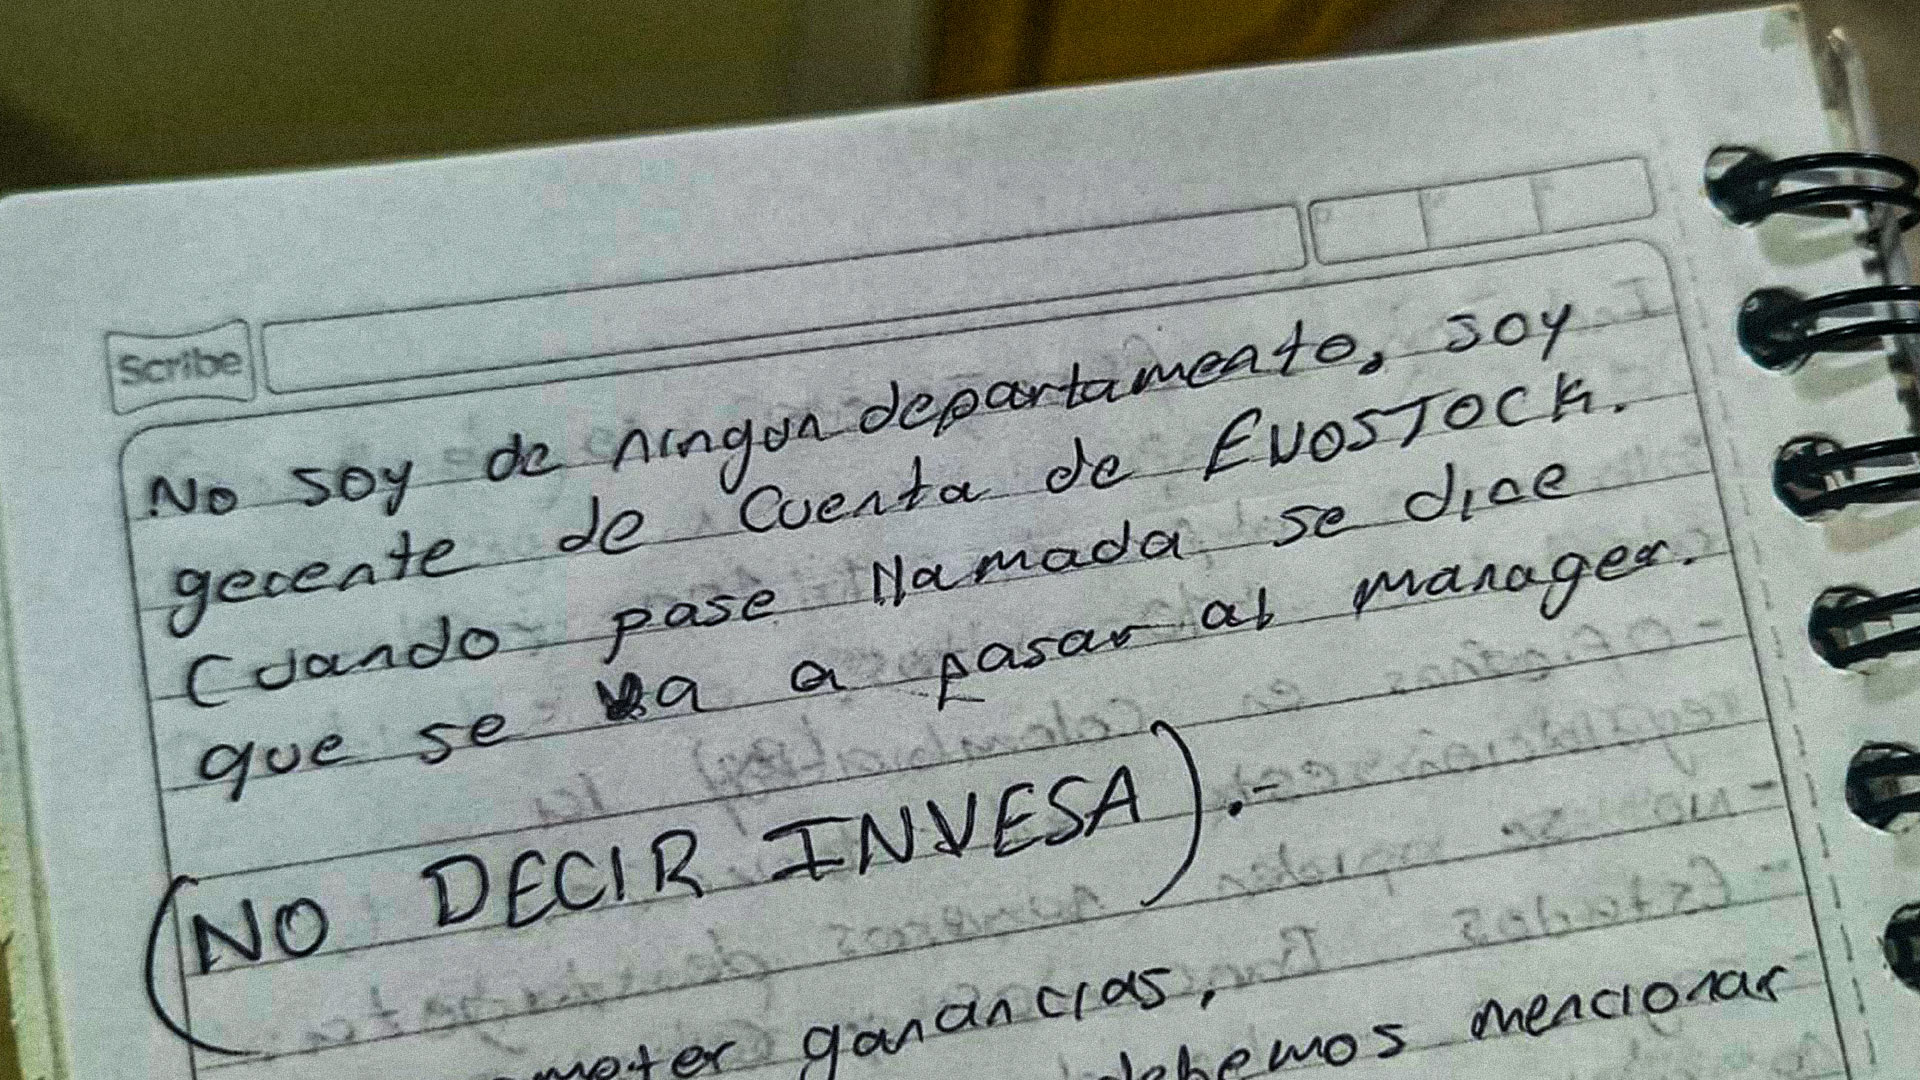 Scribe
No soy de ningun departamento, soy
gerente de Cuenta de EVOSTOCK.
Cuando pase llamada se dice
que se va a pasar al manager.
(NO DECIR INVESA).-
meter ganancias,
debemos mencionar